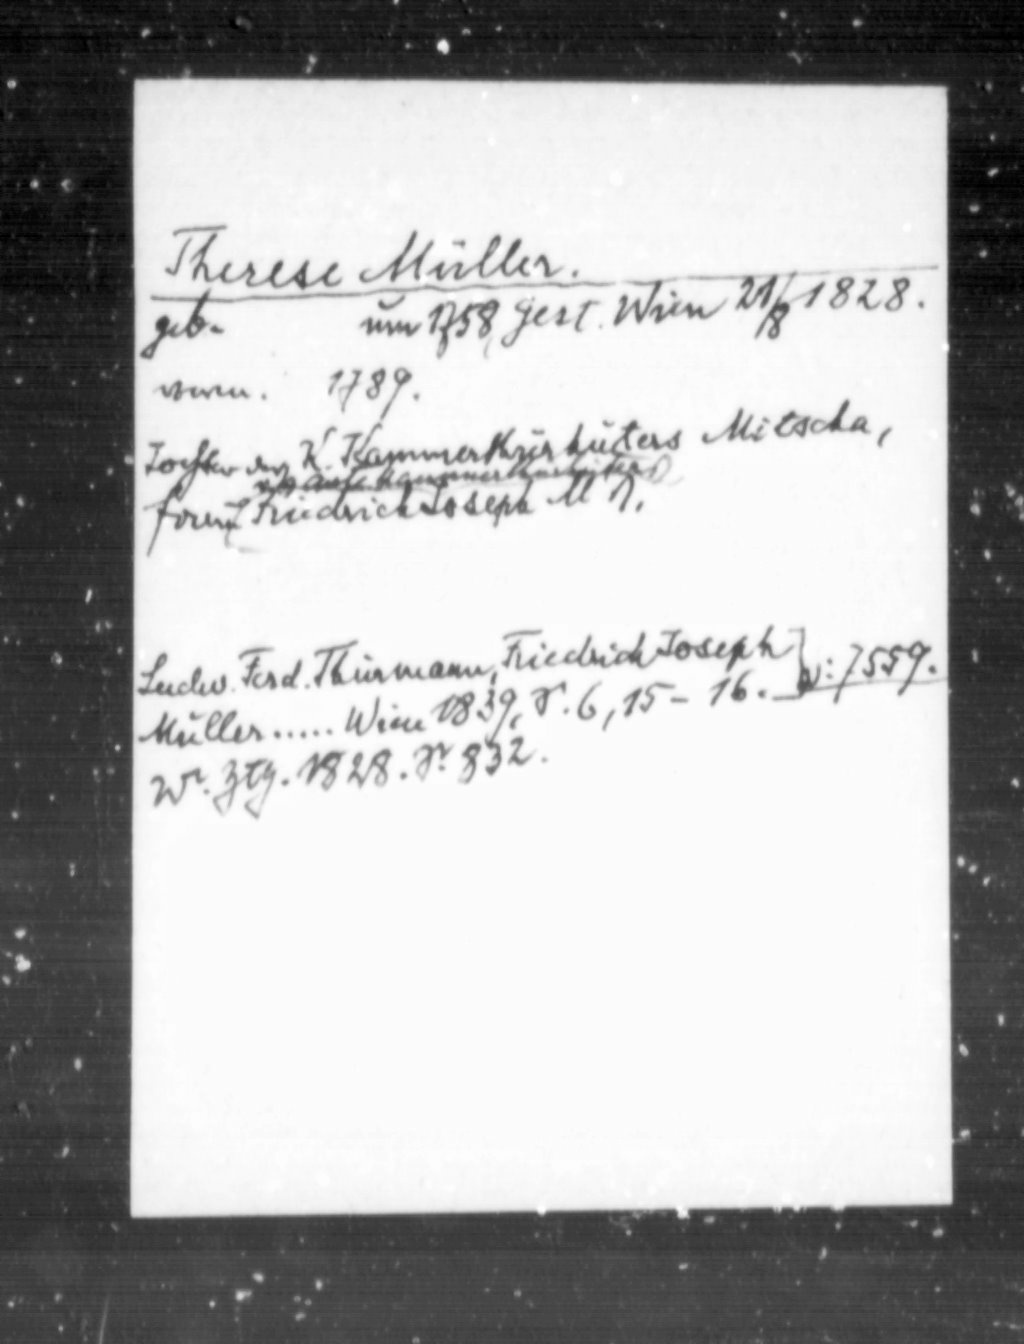 Therese Müller.
geb. um 1758, gest. Wien 21/8 1828.
verm. 1789.
Tochter des K. Kammerthürhüters Mitscha,
Friedrich Joseph M's.
Ludw. Ferd. Thürmann, Friedrich Joseph
Müller ..... Wien 1839, S. 6, 15 – 16. v: 7559.
Wr. Ztg. 1828. S. 832.